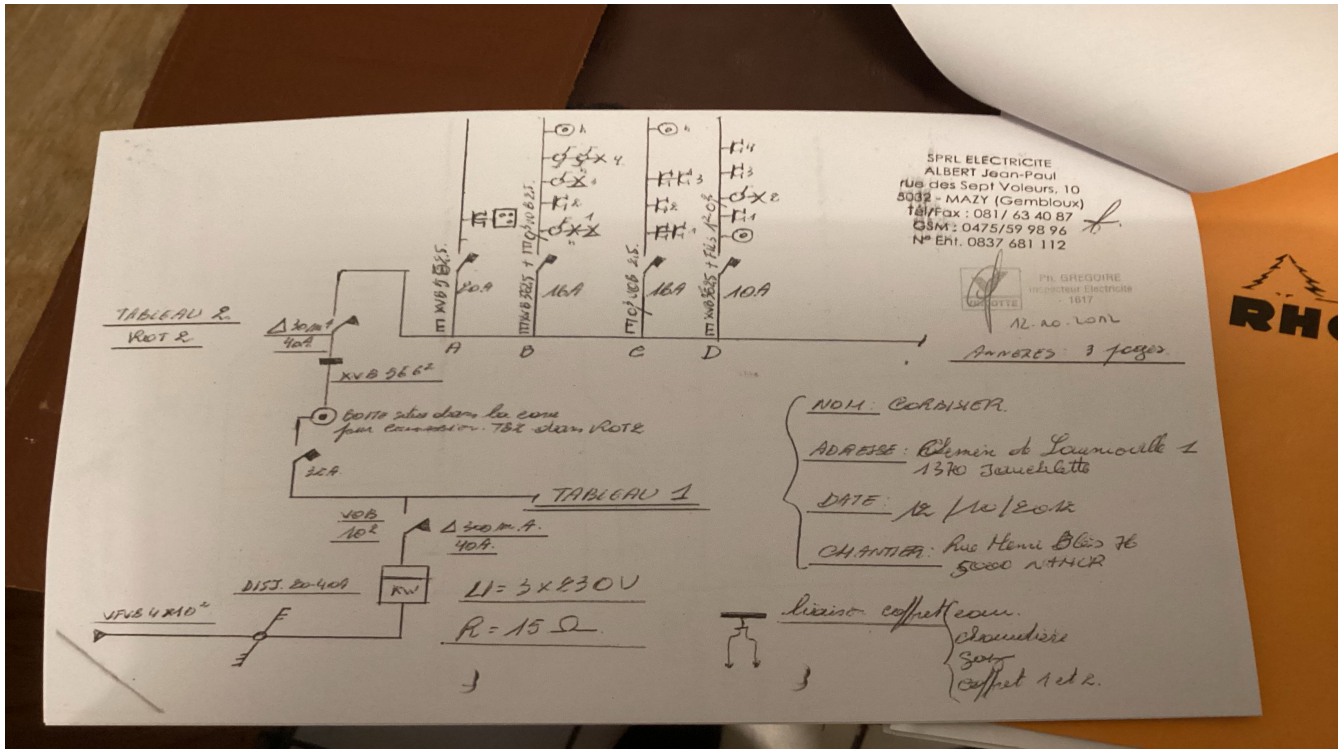 SPRL ELECTRICITE
ALBERT Jean-Paul
rue des Sept Voleurs, 10
5032 - MAZY (Gembloux)
Tél/Fax : 081/ 63 40 87
GSM : 0475/59 98 96
N° Ent. 0837 681 112
PH. GREGOIRE
Inspecteur Electricité
1617
VINÇOTTE
12.10.2012
ANNEXES: 3 pages
RH
h
4
3
2
1
h
3
2
1
4
3
2
1
XVB 5G2,5
XVB 3G2,5 + VOB 2,5
VOB 2,5
XVB 3G2,5 +
20A
16A
16A
10A
A
B
C
D
TABLEAU 2
ROT 2
Δ 30mA
40A
XVB 5G6²
Boite située dans la cave
pour connexion TB2 dans ROT2
32A
TABLEAU 1
VOB
10²
Δ 300m.A.
40A.
KW
DISJ. 20-40A
VFVB 4x10²
U = 3x230V
R = 15 Ω
NOM: CORBISIER.
ADRESSE: Chemin de 1
1370 Jauchelette
DATE: 12/10/2012
CHANTIER: Rue Henri Blès 76
5000 NAMUR
liaison coffret eau.
chaudière
gaz
coffret 1 et 2.